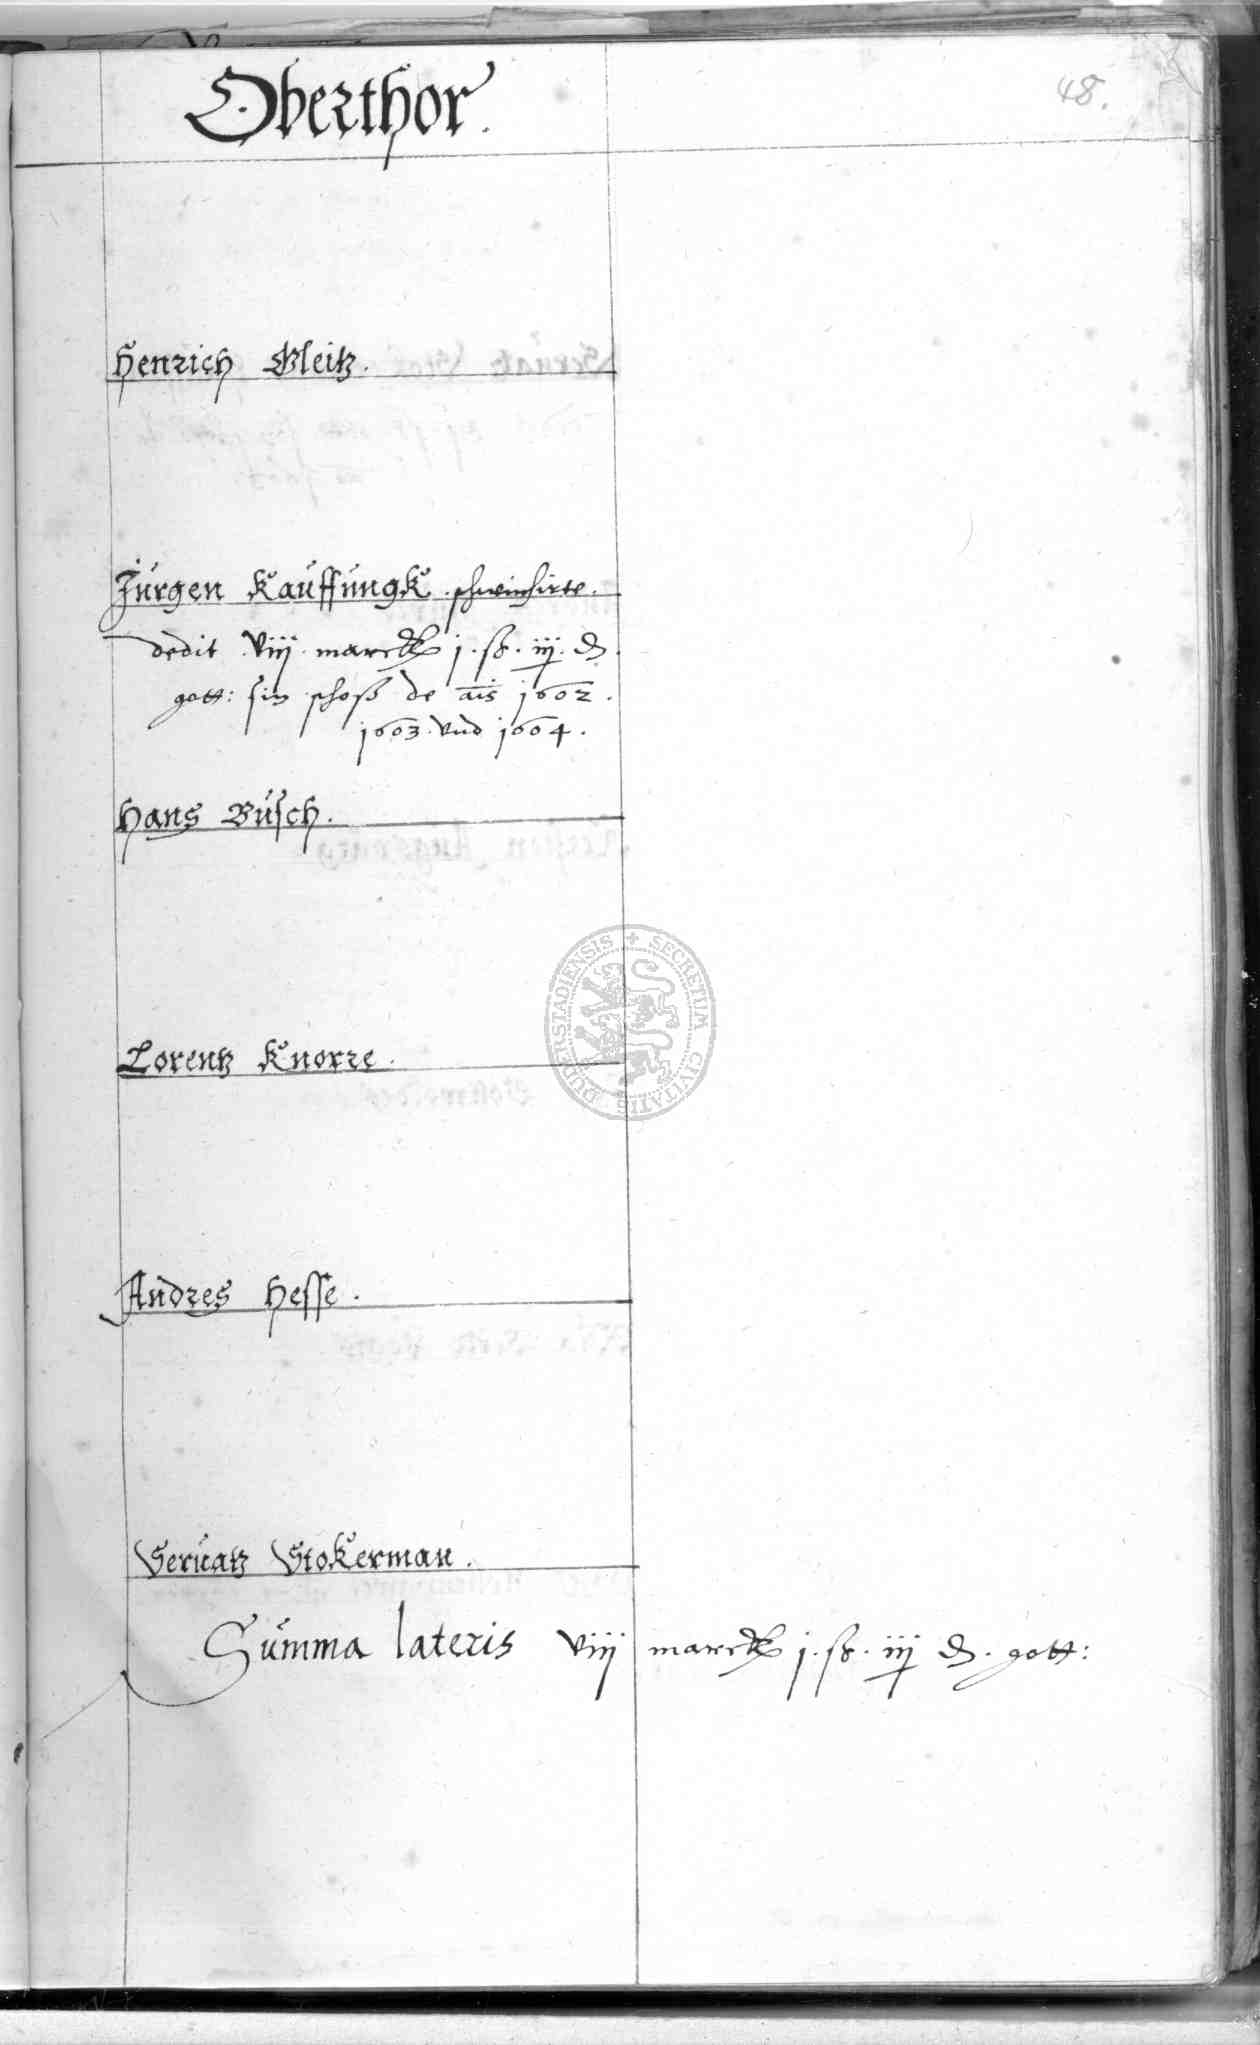 Oberthor.
48.
Henrich Gleitz.
Jürgen Kauffungk. schweinhirte.
dedit viij marck j. ß. iij. ₰.
gott: sin schoss de ais 1602.
1603. vnd 1604.
Hans Büsch.
Lorentz Knorre.
SECRETUM CIVITATIS DUDERSTADIENSIS
Andres Hesse.
Seruatz Stokerman.
Summa lateris viij marck j. ß. iij ₰. gott: